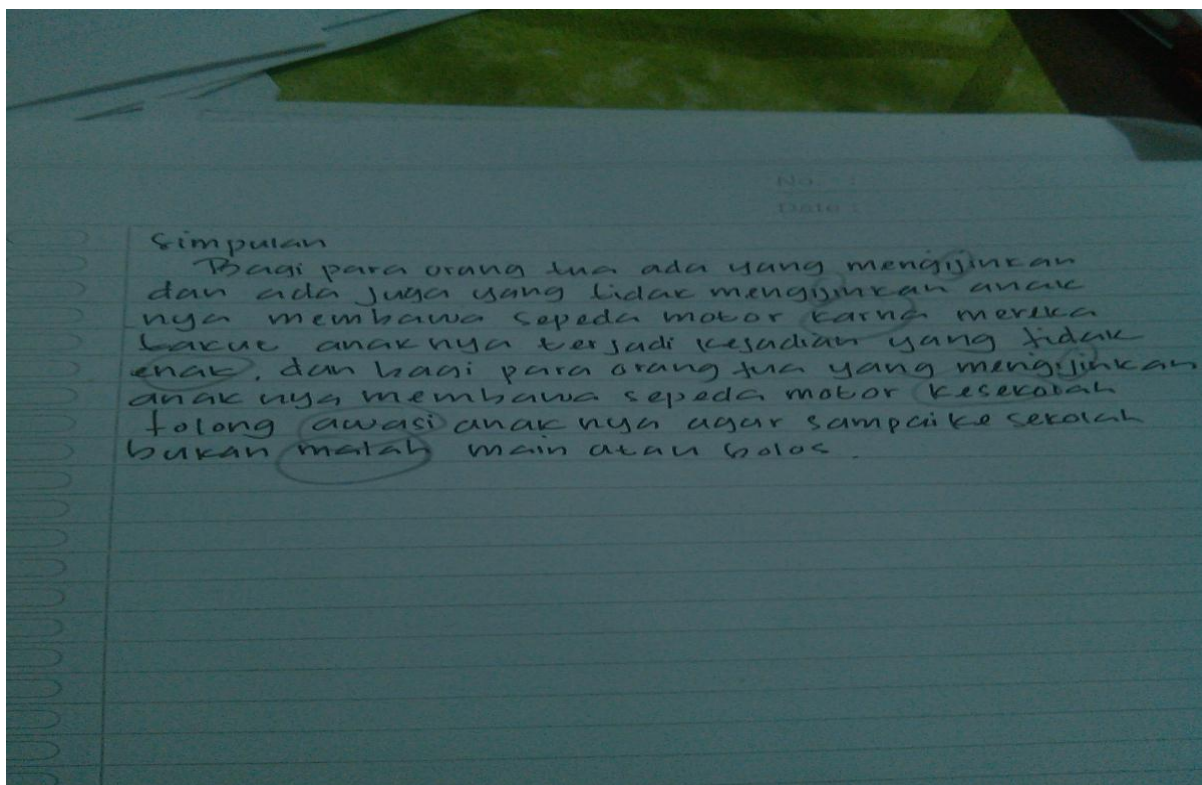 No :
Date :
Simpulan
Bagi para orang tua ada yang mengijinkan
dan ada juga yang tidak mengijinkan anak
nya membawa sepeda motor karna mereka
takut anaknya terjadi kejadian yang tidak
enak, dan bagi para orang tua yang mengijinkan
anak nya membawa sepeda motor kesekolah
tolong awasi anak nya agar sampai ke sekolah
bukan malah main atau bolos.